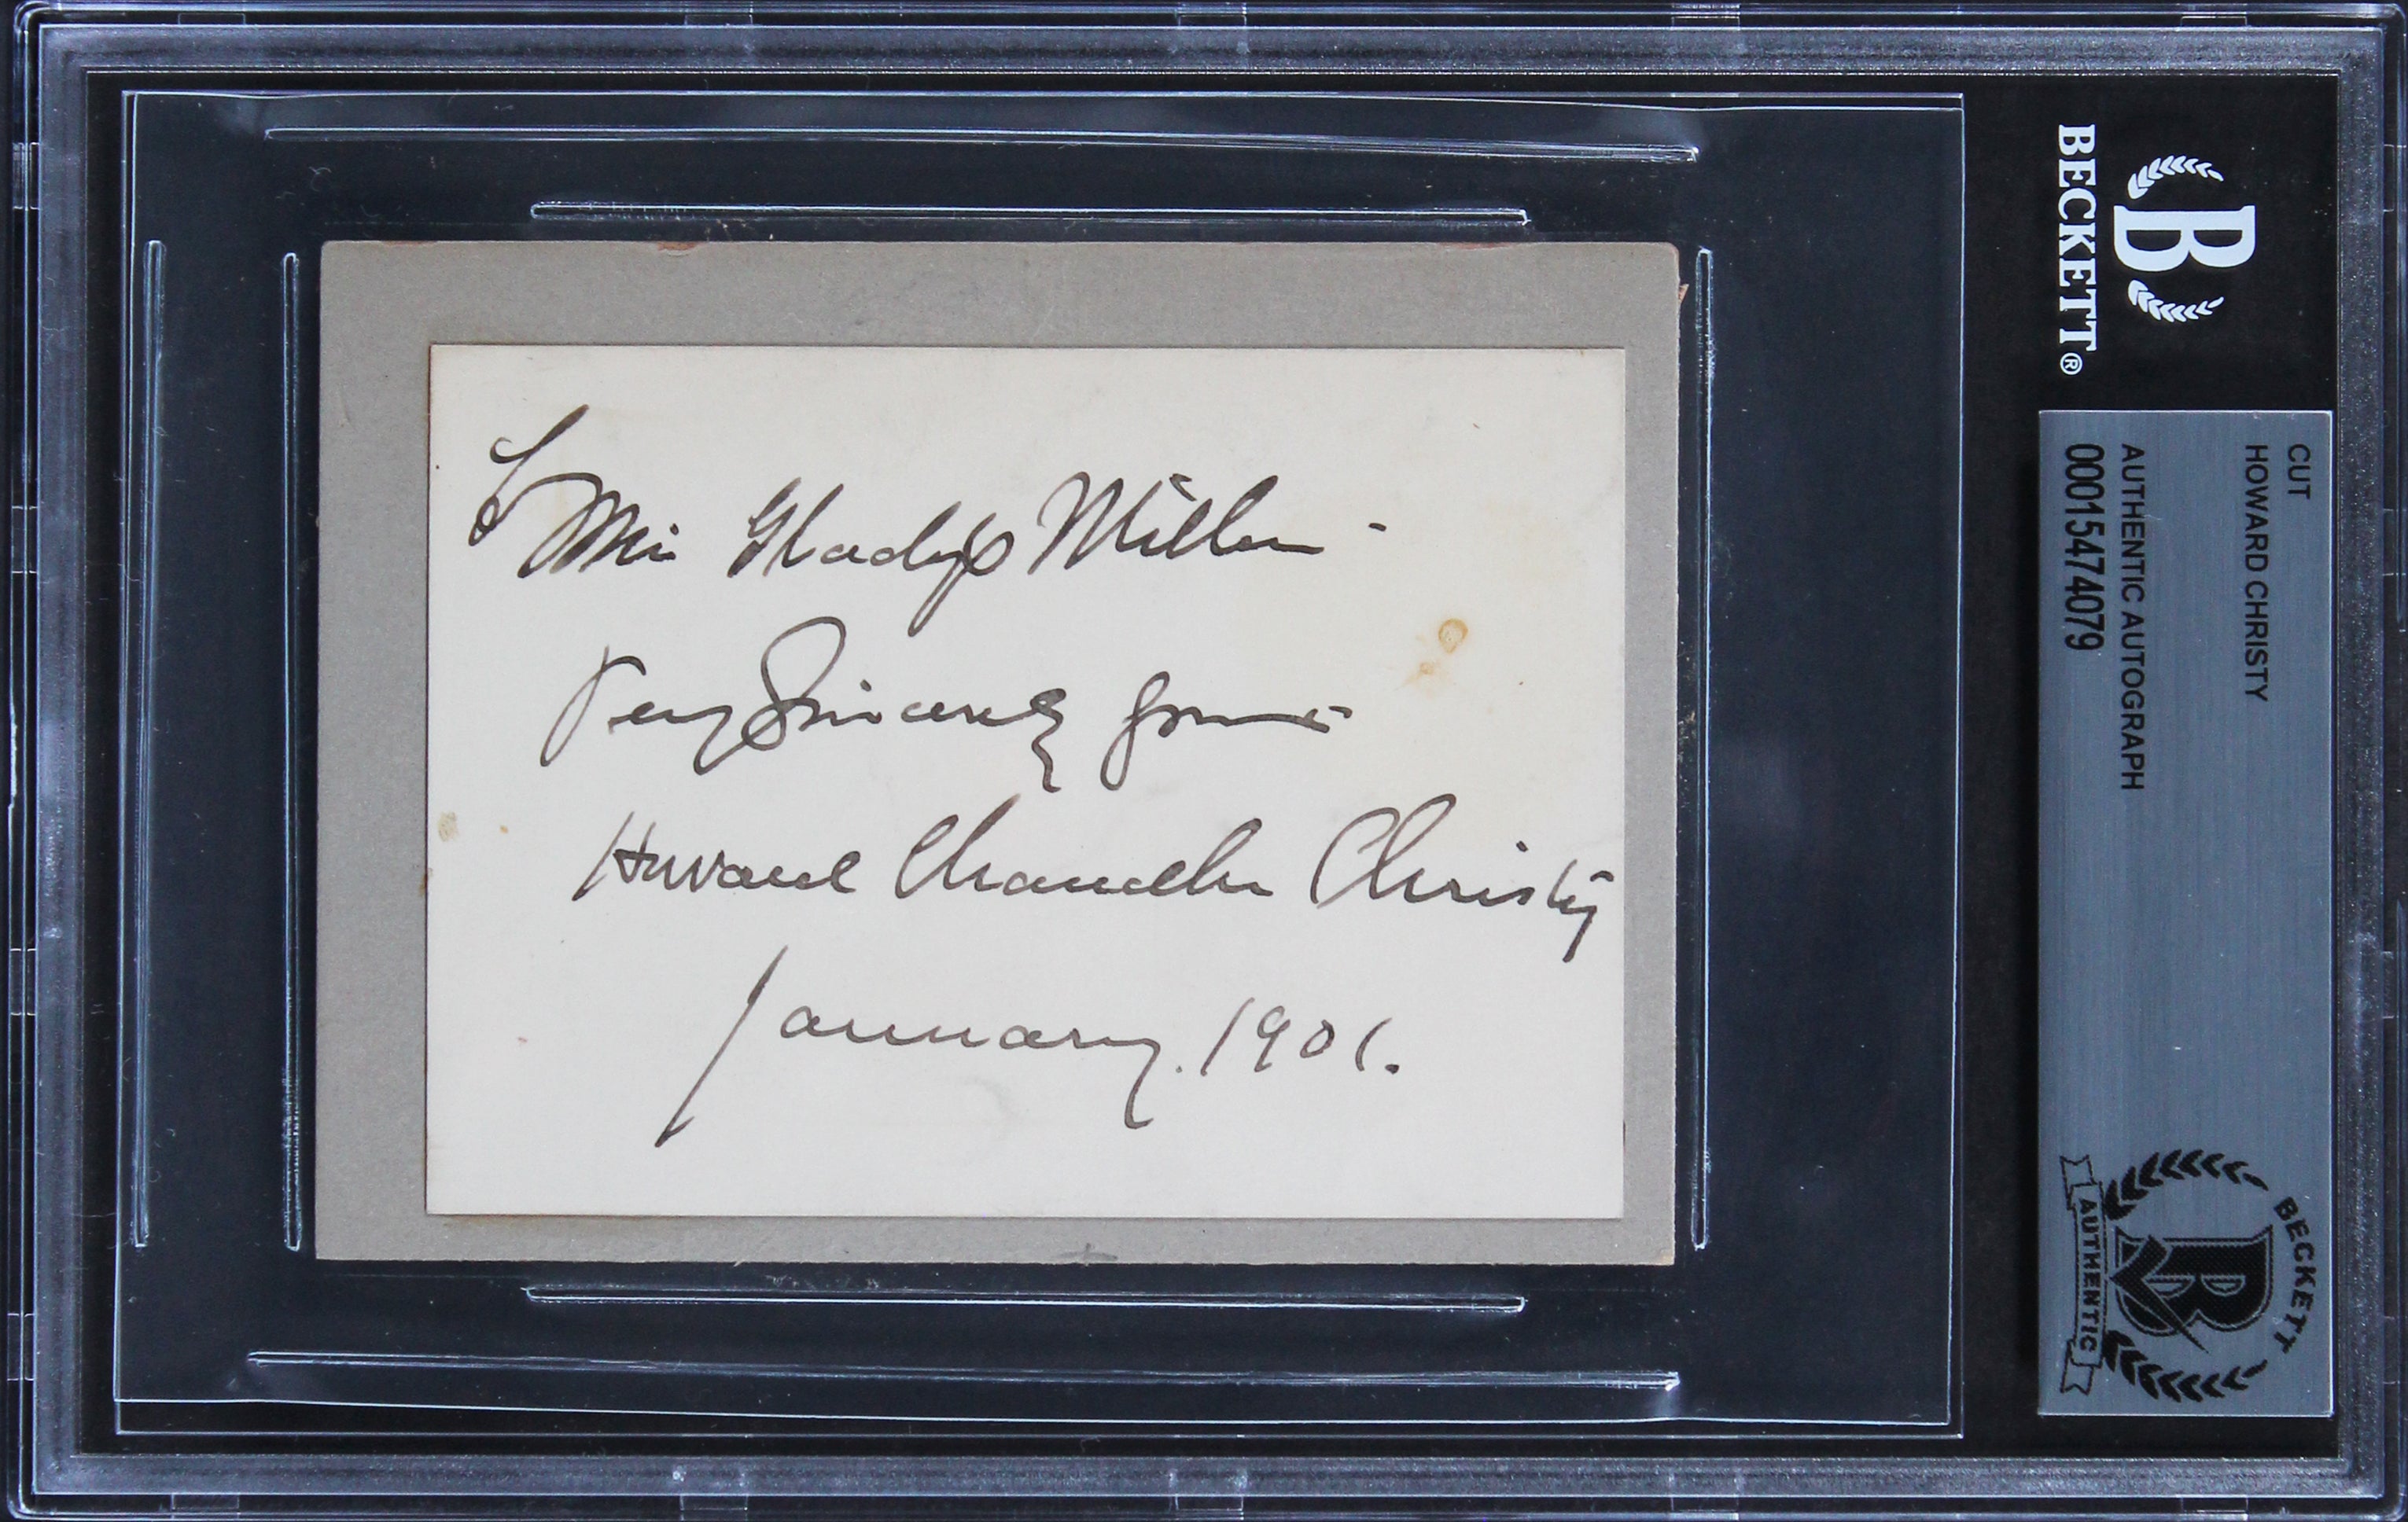 To Miss Gladys Miller -
Very Sincerely yours -
Howard Chandler Christy
January. 1901.
B
BECKETT®
CUT
HOWARD CHRISTY
AUTHENTIC AUTOGRAPH
00015474079
BECKETT
B
AUTHENTIC